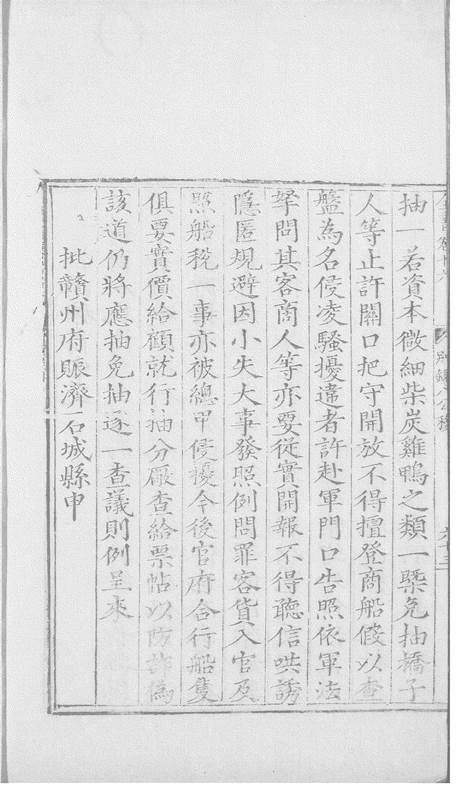 抽一若資本微細柴炭雞鴨之類一槩免抽橋子
人等止許關口把守開放不得擅登商船假以查
盤為名侵凌騷擾違者許赴軍門口告照依軍法
拏問其客商人等亦要從實開報不得聽信哄誘
隱匿規避因小失大事發照例問罪客貨入官及
照船稅一事亦被總甲侵擾今後官府合行船隻
俱要實價給顧就行抽分廠查給票帖以防詐偽
該道仍將應抽免抽逐一查議則例呈來
批贛州府賑濟石城縣申